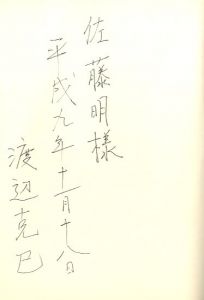 佐藤明様
平成九年十一月十八日
渡辺克巳